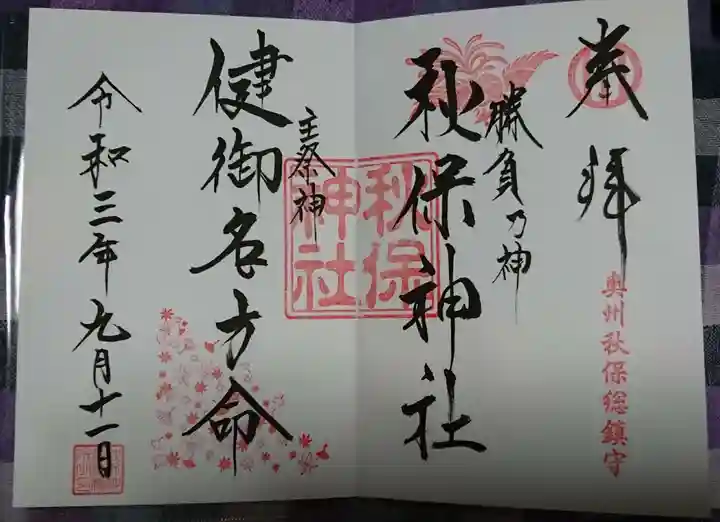 奉拝
奥州秋保総鎮守
勝負乃神
秋保神社
秋保
神社
主祭神
健御名方命
令和三年九月十一日